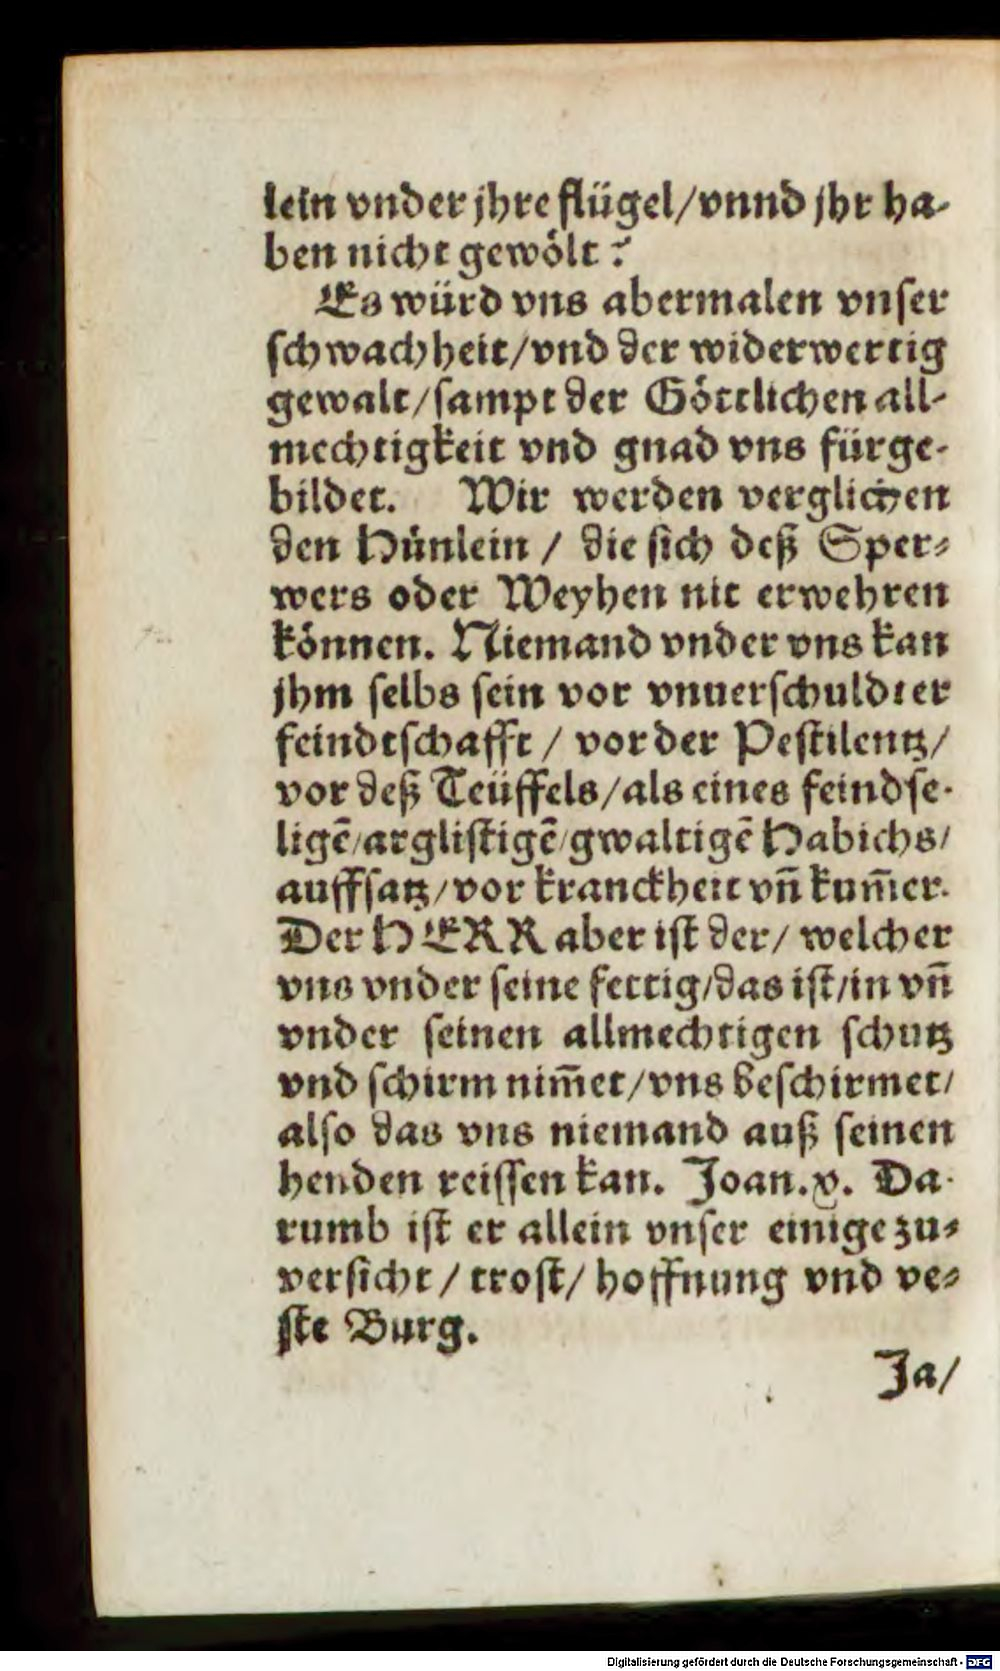 lein vnder jhre flügel/vnnd jhr ha-
ben nicht gewölt?
Es würd vns abermalen vnser
schwachheit/vnd der widerwertig
gewalt/sampt der Göttlichen all-
mechtigkeit vnd gnad vns fürge-
bildet. Wir werden verglichen
den Hünlein / die sich deß Sper-
wers oder Weyhen nit erwehren
können. Niemand vnder vns kan
jhm selbs sein vor vnuerschuldter
feindtschafft / vor der Pestilentz/
vor deß Teüffels/als eines feindse-
ligē/arglistigē/gwaltigē Habichs/
auffsatz/vor kranckheit vn̄ kum̄er.
Der HERR aber ist der/ welcher
vns vnder seine fettig/das ist/in vn̄
vnder seinen allmechtigen schutz
vnd schirm nim̄et/vns beschirmet/
also das vns niemand auß seinen
henden reissen kan. Joan.x. Da-
rumb ist er allein vnser einige zu-
versicht / trost/ hoffnung vnd ve-
ste Burg.
Ja/
Digitalisierung gefördert durch die Deutsche Forschungsgemeinschaft - DFG